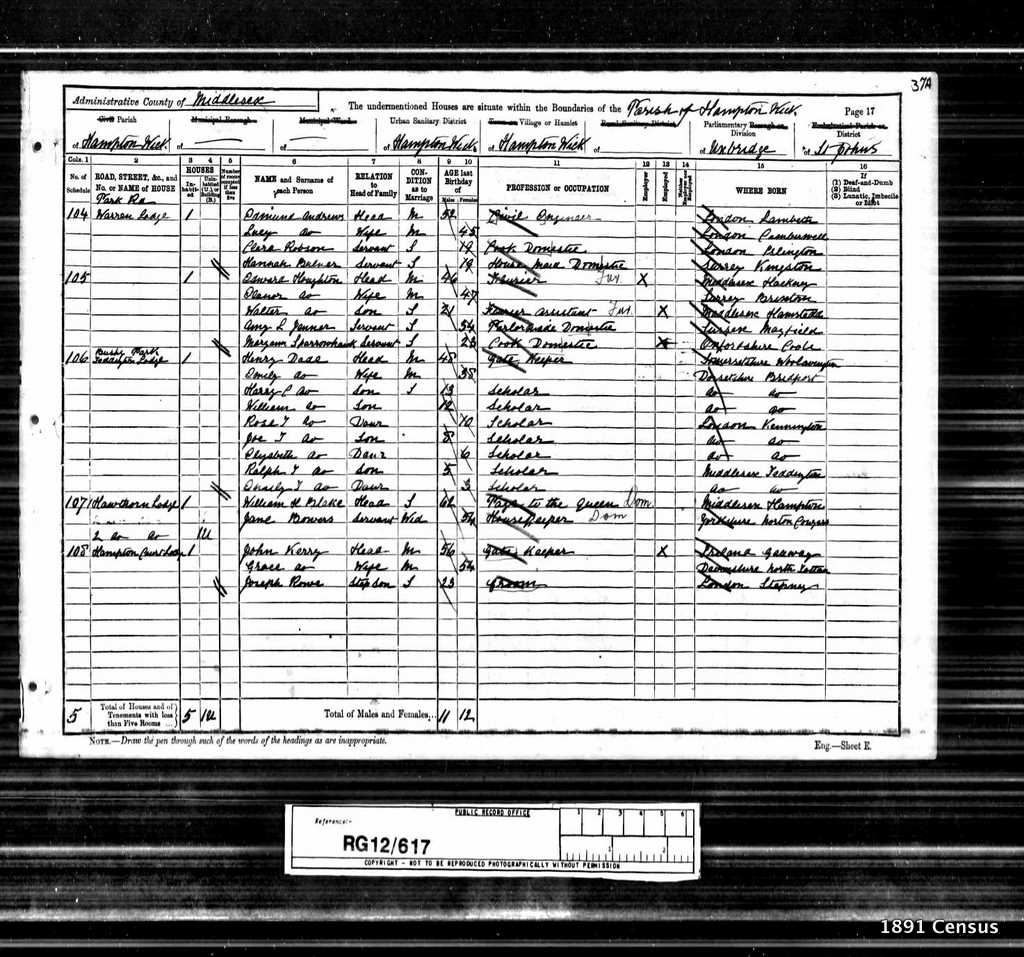 37A
Administrative County of Middlesex
The undermentioned Houses are situate within the Boundaries of the Parish of Hampton Wick
Page 17
Civil Parish Municipal Borough Municipal Ward Urban Sanitary District Town or Village or Hamlet Rural Sanitary District Parliamentary Borough or Division Ecclesiastical Parish or District
of Hampton Wick of — of of Hampton Wick of Hampton Wick of of Uxbridge of St Johns
Cols. 1 2 3 4 5 6 7 8 9 10 11 12 13 14 15 16
No. of Schedule ROAD, STREET, &c., and No. or NAME of HOUSE HOUSES Inhabited Uninhabited (U.) or Building (B.) Number of rooms occupied if less than five NAME and Surname of each Person RELATION to Head of Family CONDITION as to Marriage AGE last Birthday of Males Females PROFESSION or OCCUPATION Employer Employed Neither Employer nor Employed WHERE BORN If (1) Deaf-and-Dumb (2) Blind (3) Lunatic, Imbecile or Idiot
Park Rd
104 Warren Lodge 1 Edmund Andrews Head M 52 Civil Engineer London Lambeth
Lucy do Wife M 45 London Camberwell
Clara Robson Servant S 19 Cook Domestic London Islington
Hannah Servant S 19 House Maid Domestic Surrey Kingston
105 1 Edward Houghton Head M 46 Furrier Fur X Middlesex Hackney
Eleanor do Wife M 47 Surrey Brixton
Walter do Son S 21 Furrier assistant Fur X Middlesex Hamstead
Amy L Jenner Servant S 54 Parlormaide Domestic Sussex Mayfield
Maryann Sparrowhawk Servant S 23 Cook Domestic X Oxfordshire
Bushy Park
106 Teddington Lodge 1 Henry Dade Head M 48 Gate Keeper Somersetshire Woolavington
Emily do Wife M 38 Dorsetshire Bridport
Harry C do Son S 13 Scholar do do
William do Son 12 Scholar do do
Rose T do Daur 10 Scholar London Kennington
Joe T do Son 8 Scholar do do
Elizabeth do Daur 6 Scholar do do
Ralph T do Son 5 Scholar Middlesex Teddington
Emily T do Daur 3 Scholar do do
107 Hawthorn Lodge 1 William H Blake Head S 62 Page to the Queen Dom Middlesex Hampton
Jane Bowers Servant Wid 54 HouseKeeper Dom Yorkshire Norton Conyers
2 do do 1U
108 Hampton Court Lodge 1 John Kerry Head M 56 Gate Keeper X Ireland Galway
Grace do Wife M 54 Devonshire North Tatton
Joseph Rowe Stepson S 23 Groom London Stepney
5 Total of Houses and of Tenements with less than Five Rooms 5 1U Total of Males and Females... 11 12
NOTE.—Draw the pen through such of the words of the headings as are inappropriate.
Eng.—Sheet E.
PUBLIC RECORD OFFICE
1 2 3 4 5 6
Reference:-
RG12/617
1 2
COPYRIGHT - NOT TO BE REPRODUCED PHOTOGRAPHICALLY WITHOUT PERMISSION
1891 Census